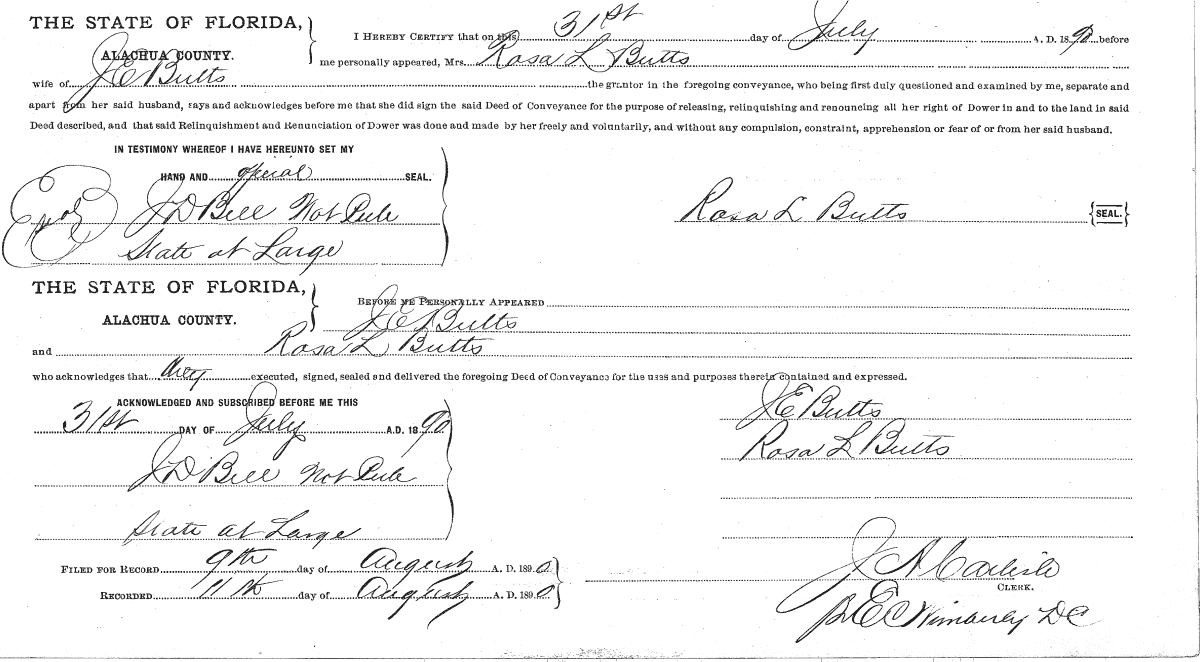 THE STATE OF FLORIDA,
ALACHUA COUNTY.
I HEREBY CERTIFY that on this 31st day of July A. D. 1890 before
me personally appeared, Mrs. Rosa L Butts
wife of J E Butts the grantor in the foregoing conveyance, who being first duly questioned and examined by me, separate and
apart from her said husband, says and acknowledges before me that she did sign the said Deed of Conveyance for the purpose of releasing, relinquishing and renouncing all her right of Dower in and to the land in said
Deed described, and that said Relinquishment and Renunciation of Dower was done and made by her freely and voluntarily, and without any compulsion, constraint, apprehension or fear of or from her said husband.
IN TESTIMONY WHEREOF I HAVE HEREUNTO SET MY
HAND AND official SEAL.
J D Bell Not Pub
State at Large
Rosa L Butts {SEAL.}
THE STATE OF FLORIDA,
ALACHUA COUNTY.
BEFORE ME PERSONALLY APPEARED
J E Butts
and Rosa L Butts
who acknowledges that they executed, signed, sealed and delivered the foregoing Deed of Conveyance for the uses and purposes therein contained and expressed.
ACKNOWLEDGED AND SUBSCRIBED BEFORE ME THIS
31st DAY OF July A.D. 1890
J D Bell Not Pub
State at Large
J E Butts
Rosa L Butts
FILED FOR RECORD 9th day of August A. D. 1890
RECORDED 11th day of August A. D. 1890
J A Carlisle
CLERK.
E C Wimberly DC